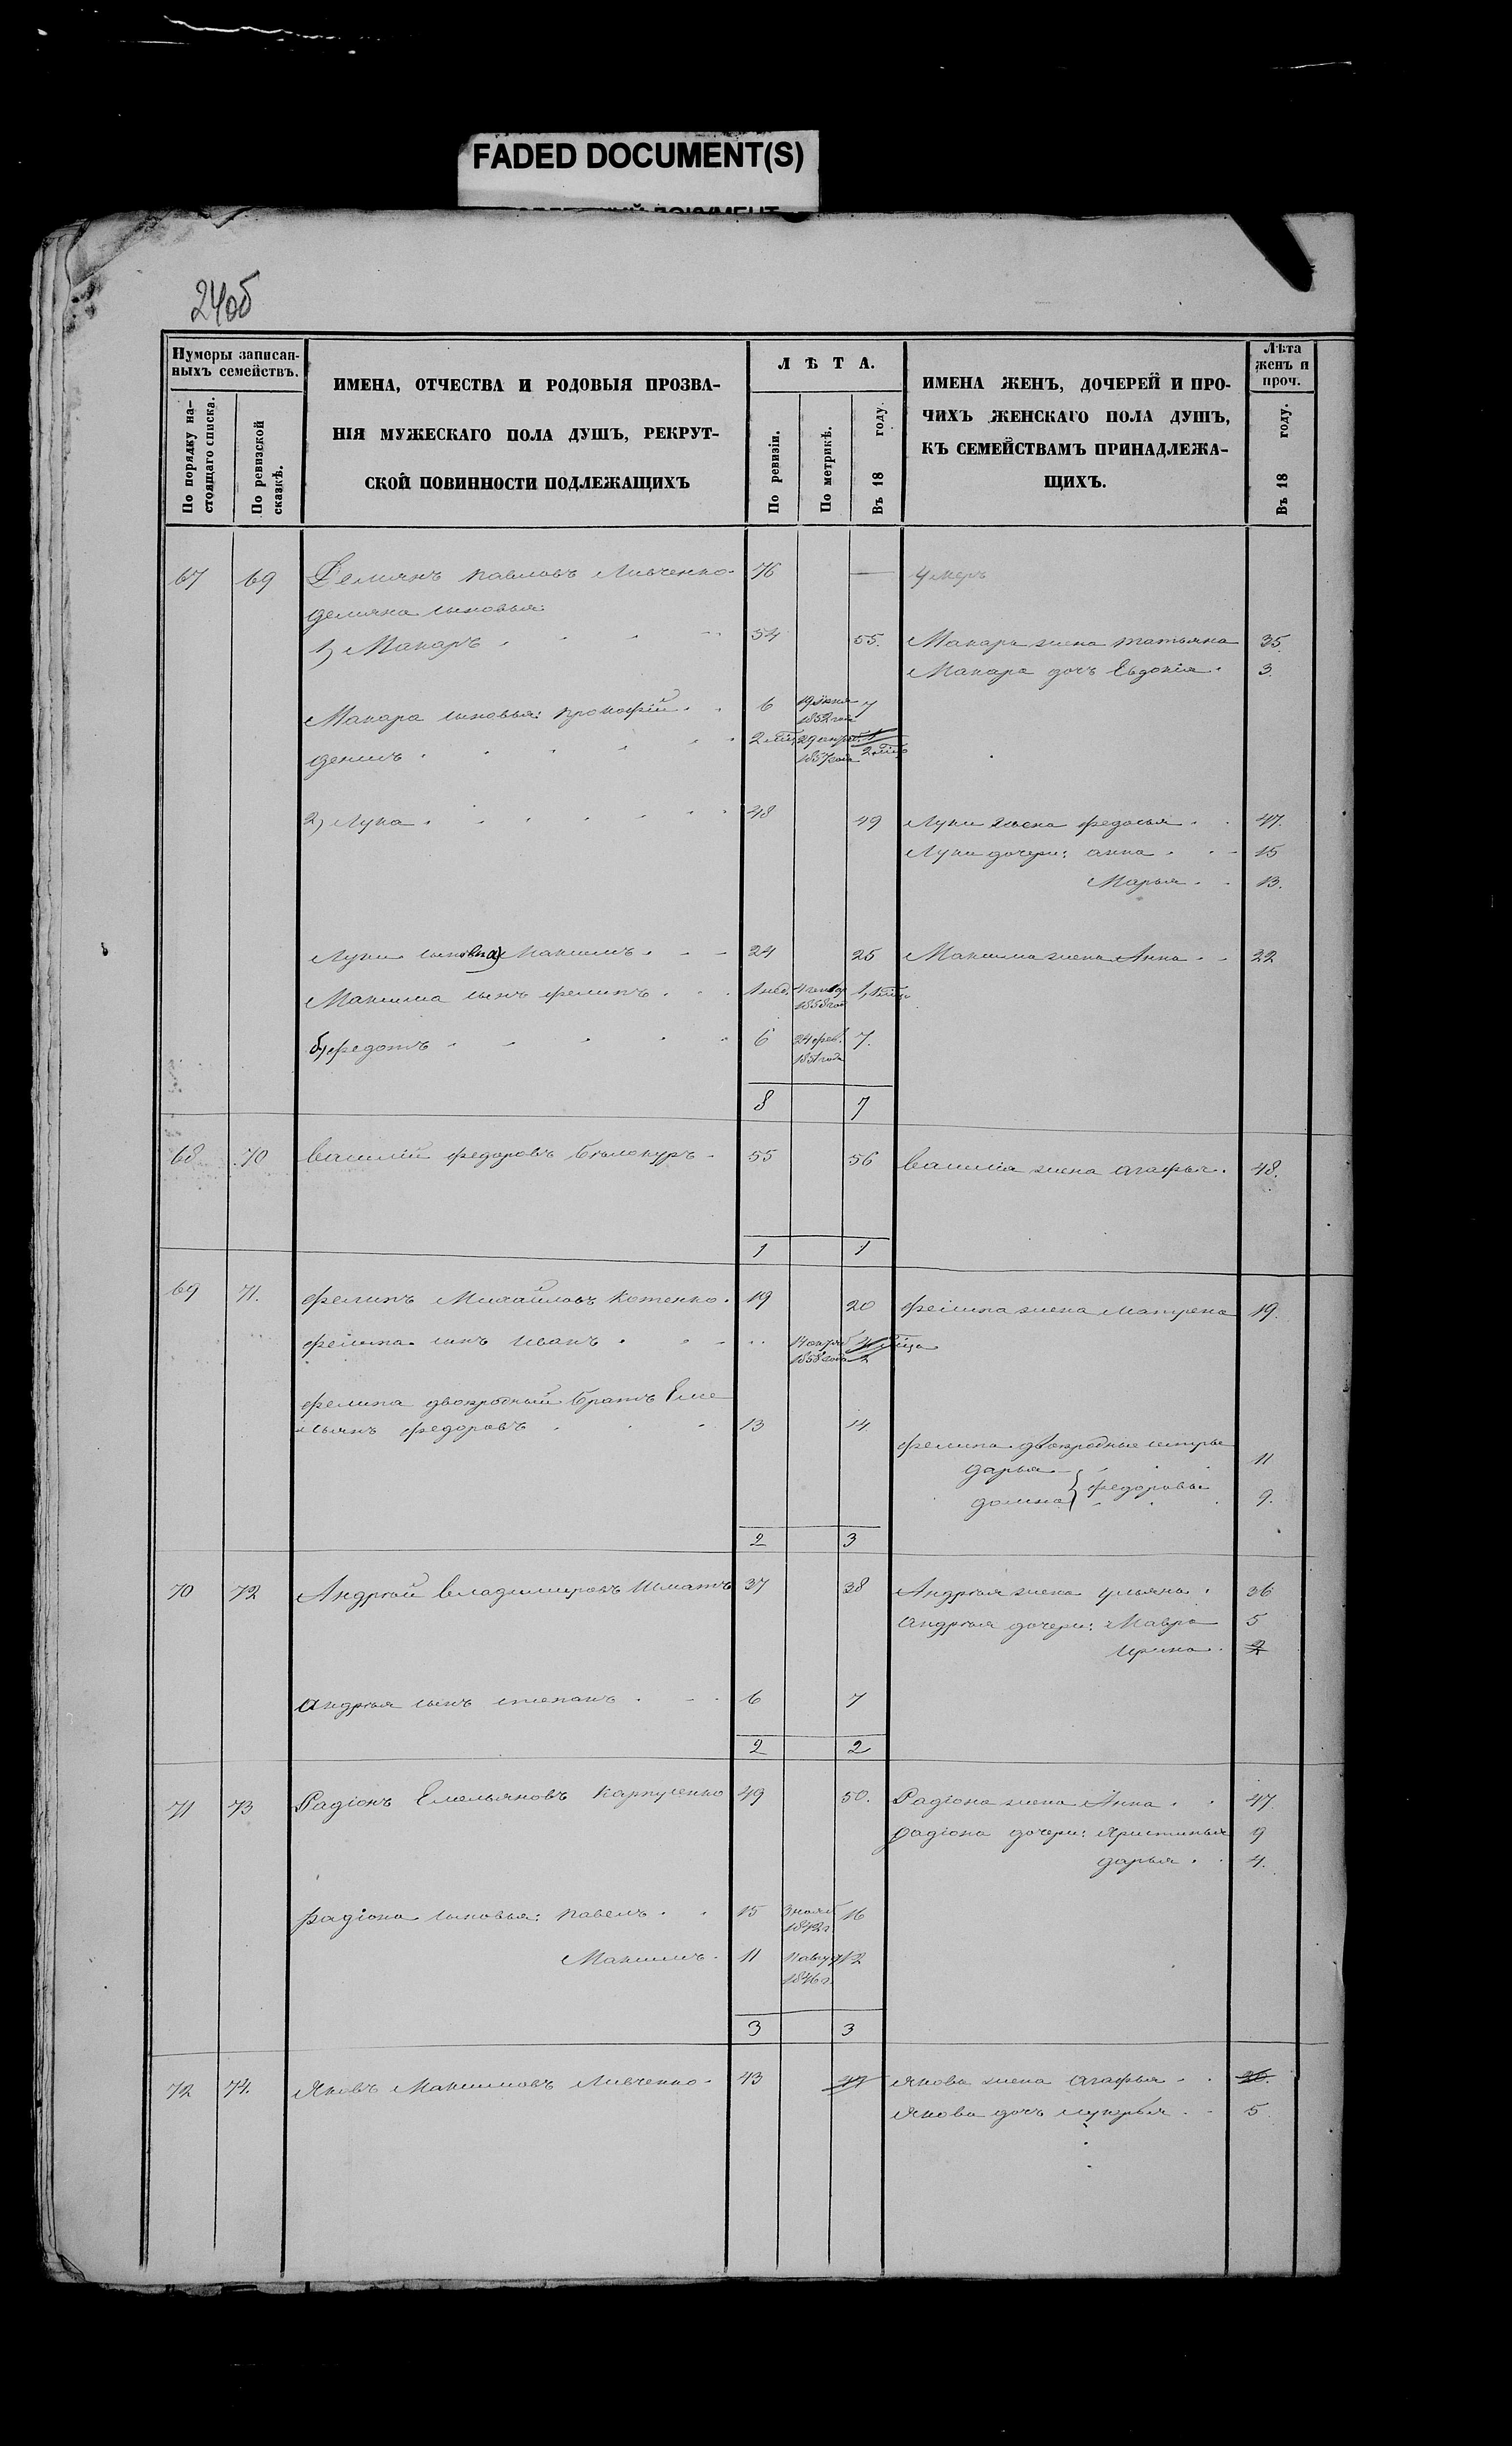 FADED DOCUMENT(S)
24об
Нумеры записан-
ныхъ семействъ.
По порядку на-
стоящаго списка.
По ревизской
сказкѣ.
ИМЕНА, ОТЧЕСТВА И РОДОВЫЯ ПРОЗВА-
НІЯ МУЖЕСКАГО ПОЛА ДУШЪ, РЕКРУТ-
СКОЙ ПОВИННОСТИ ПОДЛЕЖАЩИХЪ
Л Ѣ Т А.
По ревизіи.
По метрикѣ.
Въ 18 году.
ИМЕНА ЖЕНЪ, ДОЧЕРЕЙ И ПРО-
ЧИХЪ ЖЕНСКАГО ПОЛА ДУШЪ,
КЪ СЕМЕЙСТВАМЪ ПРИНАДЛЕЖА-
ЩИХЪ.
Лѣта
женъ и
проч.
Въ 18 году.
67 69 Демьянъ Павловъ Ливченко 76 — Умеръ
Демьяна сыновья:
1) Макаръ 54 55. Макара жена Татьяна 35.
Макара дочь Евдокія 3.
Макара сыновья: Прокофій 6 19 Іюня 1852 года 7
Денисъ 1857 года
2) Лука 48 49 Луки жена Федосья 47.
Луки дочери: Анна 15
Марья 13.
Луки сыновья а) Максимъ 24 25 Максима жена Анна 22
Максима сынъ Филипъ 1 нед. 1858 год
б) Федотъ 6 24 фев. 1851 года 7.
8 7
68 70 Василій Федоровъ Бѣлокуръ 55 56 Василія жена Агафья 48.
1 1
69 71. Филипъ Михайловъ Котенко 19 20 Филипа жена Матрена 19.
Филипа сынъ Иванъ 1858 года
Филипа двоюродный братъ Еме
льянъ Федоровъ 13 14
Филипа двоюродные сестры
Дарья 11
Федоровы
Домна 9.
2 3
70 72 Андрѣй Владимировъ 37 38 Андрѣя жена Ульяна 36
Андрѣя дочери: Мавра 5
Ирина 2
Андрѣя сынъ Степанъ 6 7
2 2
71 73 Радіонъ Емельяновъ Карпусенко 49 50. Радіона жена Анна 47.
Радіона дочери: Христинья 9
Дарья 4.
Радіона сыновья: Павелъ 15 3 нояб 1842 г. 16
Максимъ 11 11 авгу 1846 г. 12
3 3
72 74. Яковъ Максимовъ Ливченко 43 44 Якова жена Агафья 36.
Якова дочь Лукерья 5